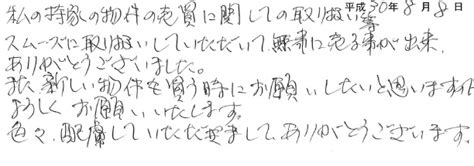 平成30年8月8日
私の持家の物件の売買に関しての取り扱い等
スムーズに取り扱いしていただいて無事に売る事が出来、
ありがとうございました。
また、新しい物件を買う時にお願いしたいと思いますので
よろしくお願いいたします。
色々、配慮していただきまして、ありがとうございます。